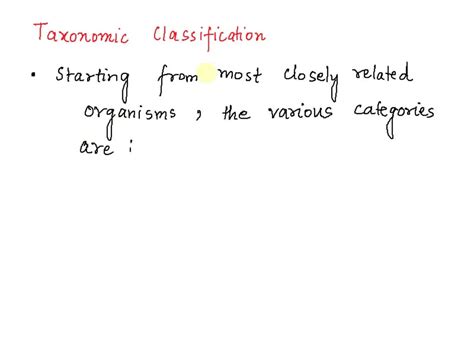 Taxonomic Classification
• Starting from most closely related
organisms, the various categories
are :